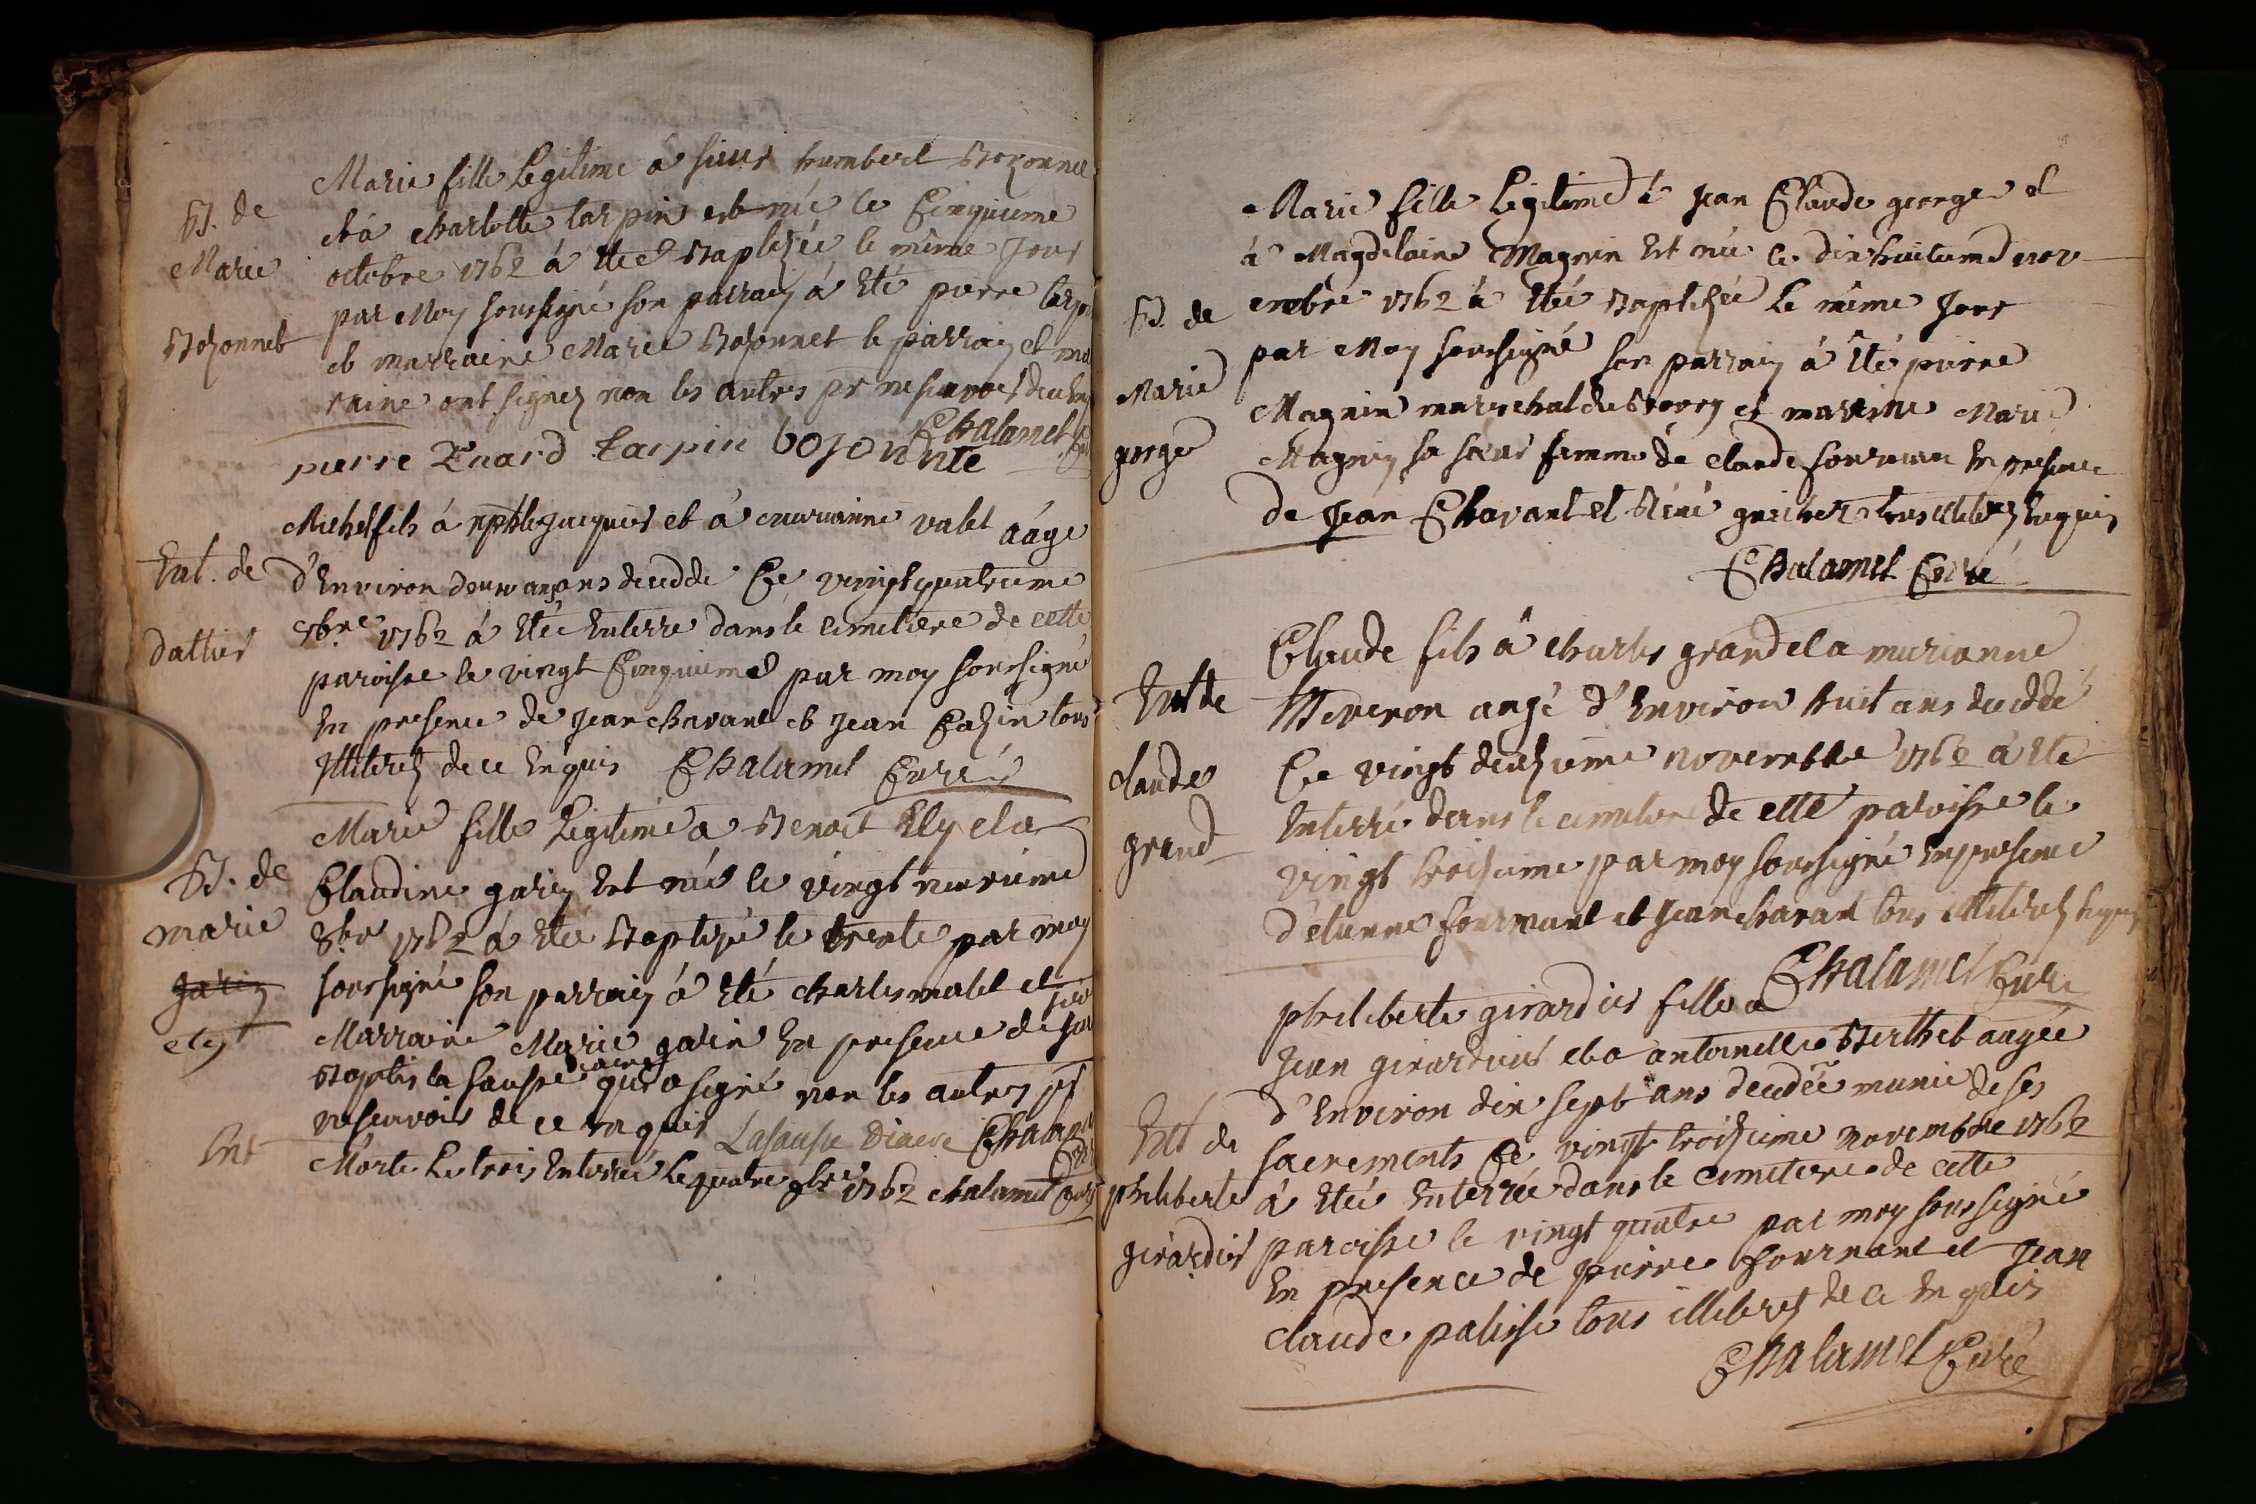 Marie fille Legitime à sieur humbert Bozonnet
B. de
et à charlotte tarpin est née le Cinquieme
Marie
octobre 1762 à Eté Baptisée le même Jour
par Moy soussigné son parrain à Eté pierre
Bozonnet
et marraine Marie Bozonnet le parrain et mar
raine ont signez non les autres pr ne scavoir de ce
Chalamel
pierre Tarpin bozonnte
Michel fils à jacques et à mariane valet aáge
Ent. de
d'Environ ans decedde Ce vingt quatrieme
bre 1762 à Eté Enterre dans le cimetiere de cette
paroisse le vingt Cinquieme par moy soussigné
En presence de Jean chavant et Jean Cazin tous
Illiterez de ce Enquis Chalamel Curé
Marie fille Legitime à Benoit Ely et a
B. de
Claudine garin Est née le vingt neuvieme
marie
8bre 1762 à Eté Baptisée le trente par moy
garin
soussigné son parrain à Eté charles malet et
ely
Marraine Marie garin En presence de
Baptiste la sausse diacre qui a signé non les autres pr
ne scavoir de ce enquis Lasausse Diacre Chalamel
Ent
Morte Le trois Enterrée Le quatre 9bre 1762 chalamel Curé
Marie fille Legitime à Jean Claude george et
à Magdelaine Magnin Est née le dix huitieme nov
B. de
embre 1762 à Eté Baptisée le même Jour
par Moy soussigné son parrain à Eté pierre
Marie
Magnin mareschal du et marraine Marie
george
Magnin sa sœur femme de claude En presence
de Jean Chavant et tous illiterez Enquis
Chalamel Curé
Claude fils à charles grand et a marianne
Ent de
angé d'Environ huit ans decedé
claude
Ce vingt deuzieme novembre 1762 à Eté
Enterré dans le cimetiere de cette paroisse le
grand
vingt troizieme par moy soussigné en presence
d'etienne fournant et Jean chavant tous illiterez
Chalamel Curé
philiberte girardier fille a
Jean girardier et a antoinette Berthet aagée
d'Environ dix sept ans decedée munie de ses
Ent de
sacrements Ce vingt troizieme novembre 1762
philiberte
à Eté Enterrée dans le cimetiere de cette
girardier
paroisse le vingt quatre par moy soussigné
En presence de pierre fournant et Jean
claude palisse tous illiterez de ce En quis
Chalamel Curé